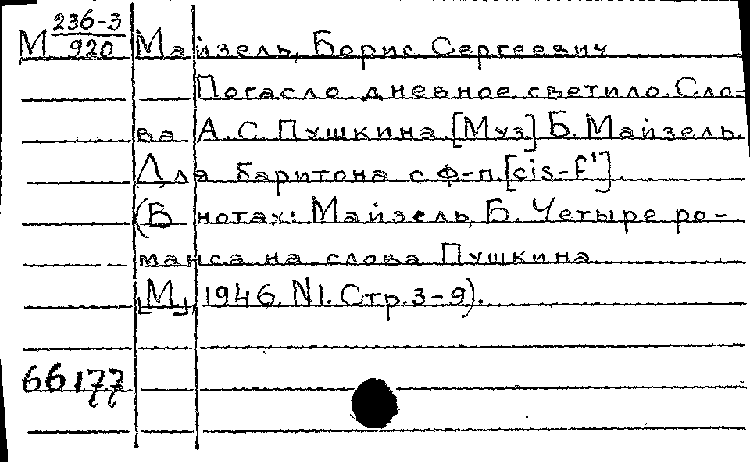 М 236-3/920 Майзель, Борис Сергеевич
Погасло дневное светило. Сло-
ва А.С. Пушкина. [Муз] Б. Майзель.
Для баритона с ф-п. [cis-f¹].
(В нотах: Майзель, Б. Четыре ро-
манса на слова Пушкина.
[М], 1946. N1. Стр. 3-9).
66177